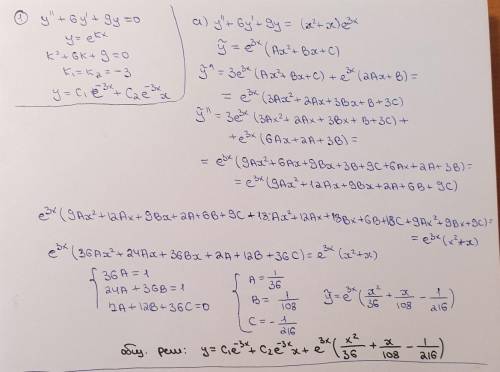 ① y'' + 6y' + 9y = 0
y = e^{kx}
k² + 6k + 9 = 0
k₁ = k₂ = -3
y = C₁e^{-3x} + C₂e^{-3x}x
a) y'' + 6y' + 9y = (x²+x)e^{3x}
ỹ = e^{3x}(Ax²+Bx+C)
ỹ' = 3e^{3x}(Ax²+Bx+C) + e^{3x}(2Ax+B) =
= e^{3x}(3Ax²+2Ax+3Bx+B+3C)
ỹ'' = 3e^{3x}(3Ax²+2Ax+3Bx+B+3C) +
+ e^{3x}(6Ax+2A+3B) =
= e^{3x}(9Ax²+6Ax+9Bx+3B+9C+6Ax+2A+3B) =
= e^{3x}(9Ax²+12Ax+9Bx+2A+6B+9C)
e^{3x}(9Ax²+12Ax+9Bx+2A+6B+9C+18Ax²+12Ax+18Bx+6B+18C+9Ax²+9Bx+9C) =
= e^{3x}(x²+x)
e^{3x}(36Ax²+24Ax+36Bx+2A+12B+36C) = e^{3x}(x²+x)
{ 36A = 1
24A + 36B = 1
2A + 12B + 36C = 0
{ A = 1/36
B = 1/108
C = -1/216
ỹ = e^{3x}(x²/36 + x/108 - 1/216)
общ. реш: y = C₁e^{-3x} + C₂e^{-3x}x + e^{3x}(x²/36 + x/108 - 1/216)